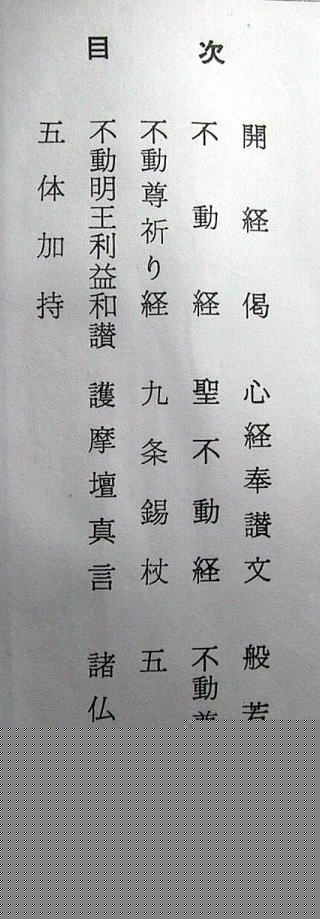 目次
開経偈 心経奉讃文 般若
不動経 聖不動経 不動
不動尊祈り経 九条錫杖 五
不動明王利益和讃 護摩壇真言 諸仏
五体加持